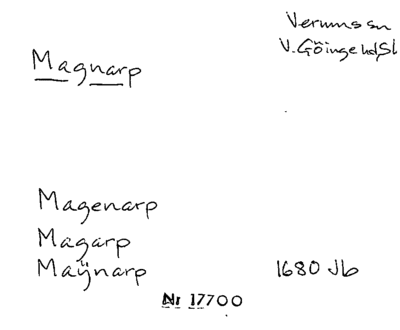 Verums sn
V. Göinge hd, Sk
Magnarp
Magenarp
Magarp
Maÿnarp 1680 Jb
Nr 17700